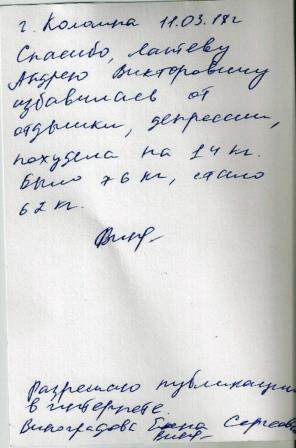 г. Коломна 11.03.17г
Спасибо, Лаптеву
Андрею Викторовичу
избавилась от
отдышки, депрессии,
похудела на 14 кг.
Было 76 кг, стало
62 кг.
Разрешаю публикацию
в интернете.
Виноградова Сергеевна